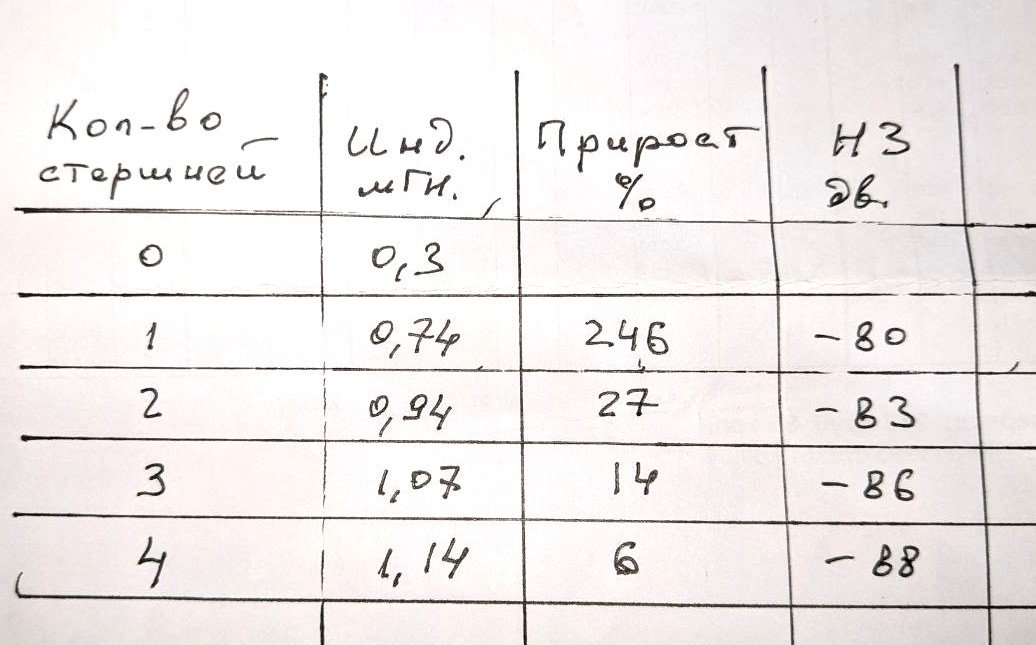 Кол-во стершней Инд. мГн. Прирост % НЗ дв.
0 0,3
1 0,74 246 -80
2 0,94 27 -83
3 1,07 14 -86
4 1,14 6 -88